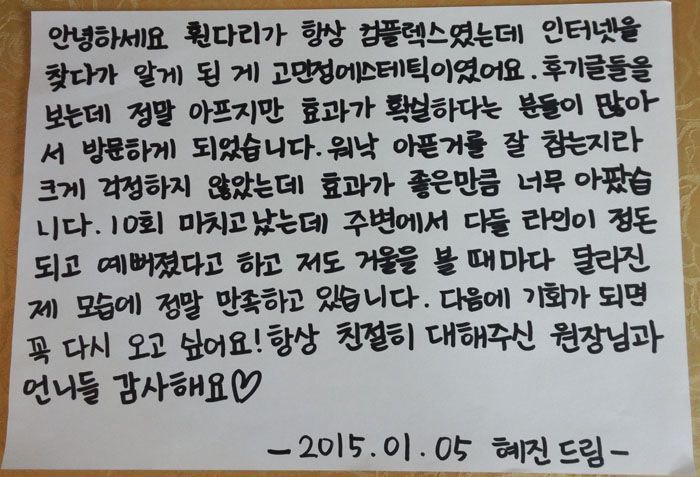 안녕하세요 휜다리가 항상 컴플렉스였는데 인터넷을
찾다가 알게 된 게 고만정에스테틱이였어요. 후기글들을
보는데 정말 아프지만 효과가 확실하다는 분들이 많아
서 방문하게 되었습니다. 워낙 아픈거를 잘 참는지라
크게 걱정하지 않았는데 효과가 좋은만큼 너무 아팠습
니다. 10회 마치고났는데 주변에서 다들 라인이 정돈
되고 예뻐졌다고 하고 저도 거울을 볼 때마다 달라진
제 모습에 정말 만족하고 있습니다. 다음에 기회가 되면
꼭 다시 오고 싶어요! 항상 친절히 대해주신 원장님과
언니들 감사해요♡
- 2015.01.05 혜진드림 -